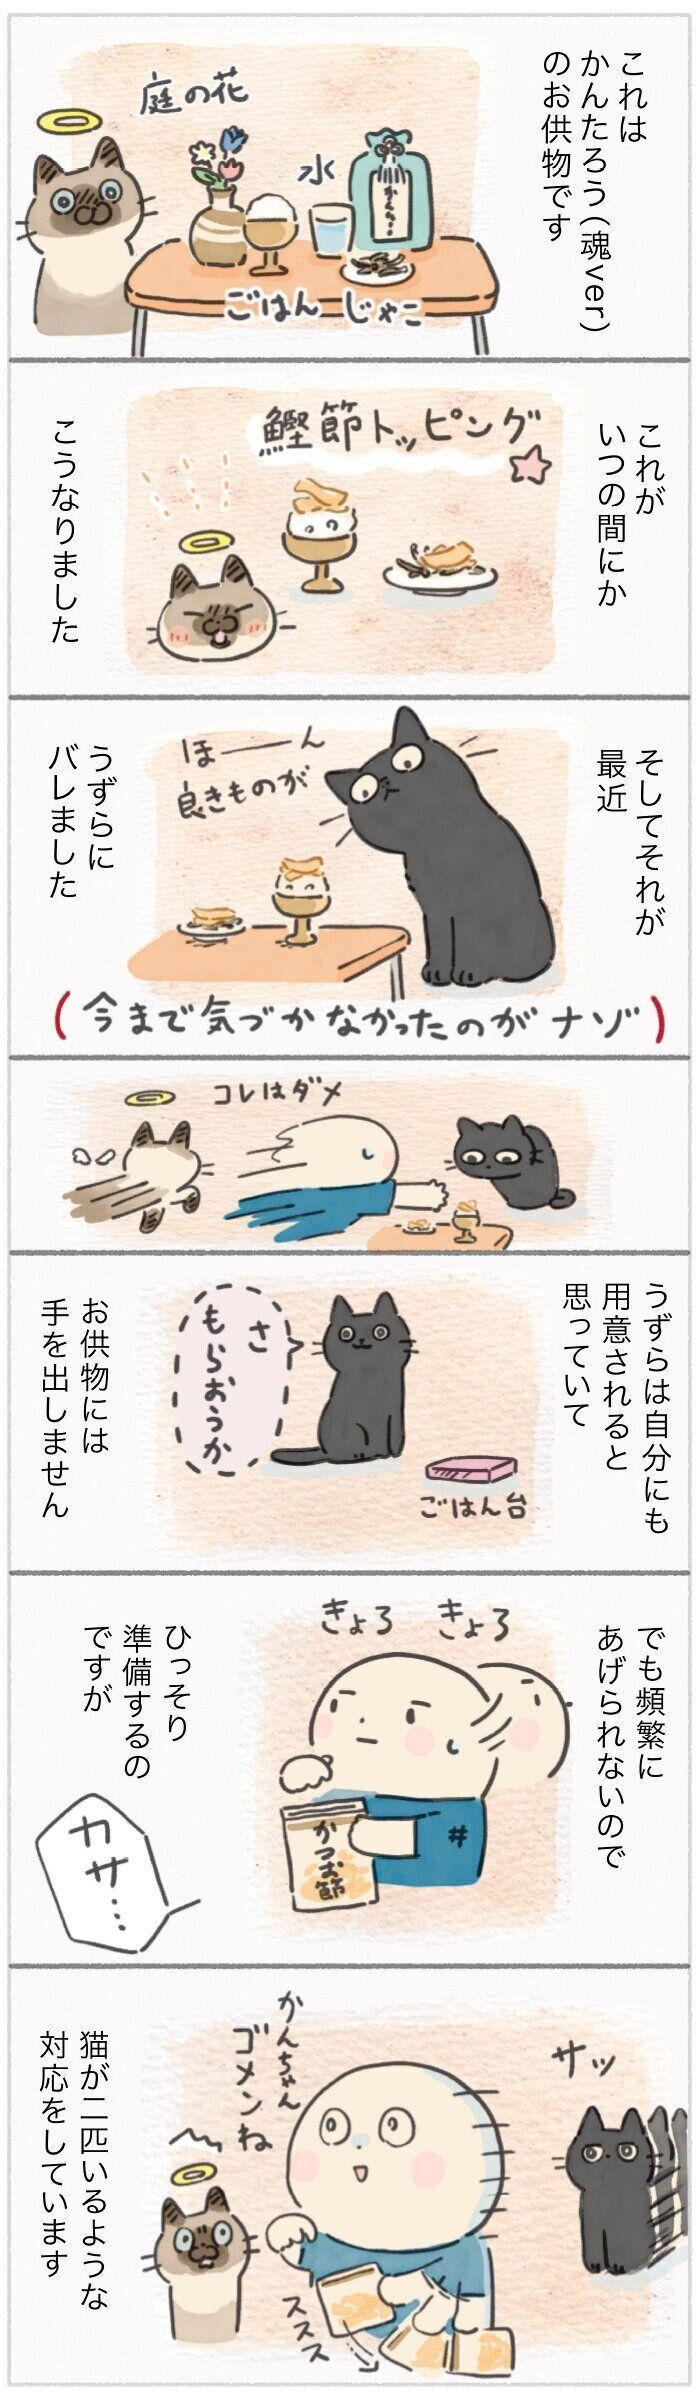 これは
かんたろう(魂ver)
のお供物です
庭の花
水
ごはん
じゃこ
これが
いつの間にか
鰹節トッピング
こうなりました
そしてそれが
最近
ほーん
良きものが
うずらに
バレました
(今まで気づかなかったのがナゾ)
コレはダメ
うずらは自分にも
用意されると
思っていて
さ
もらおうか
ごはん台
お供物には
手を出しません
でも頻繁に
あげられないので
きょろ
きょろ
かつお節
ひっそり
準備するの
ですが
カサ…
サッ
かんちゃん
ゴメンね
ススス
猫が二匹いるような
対応をしています